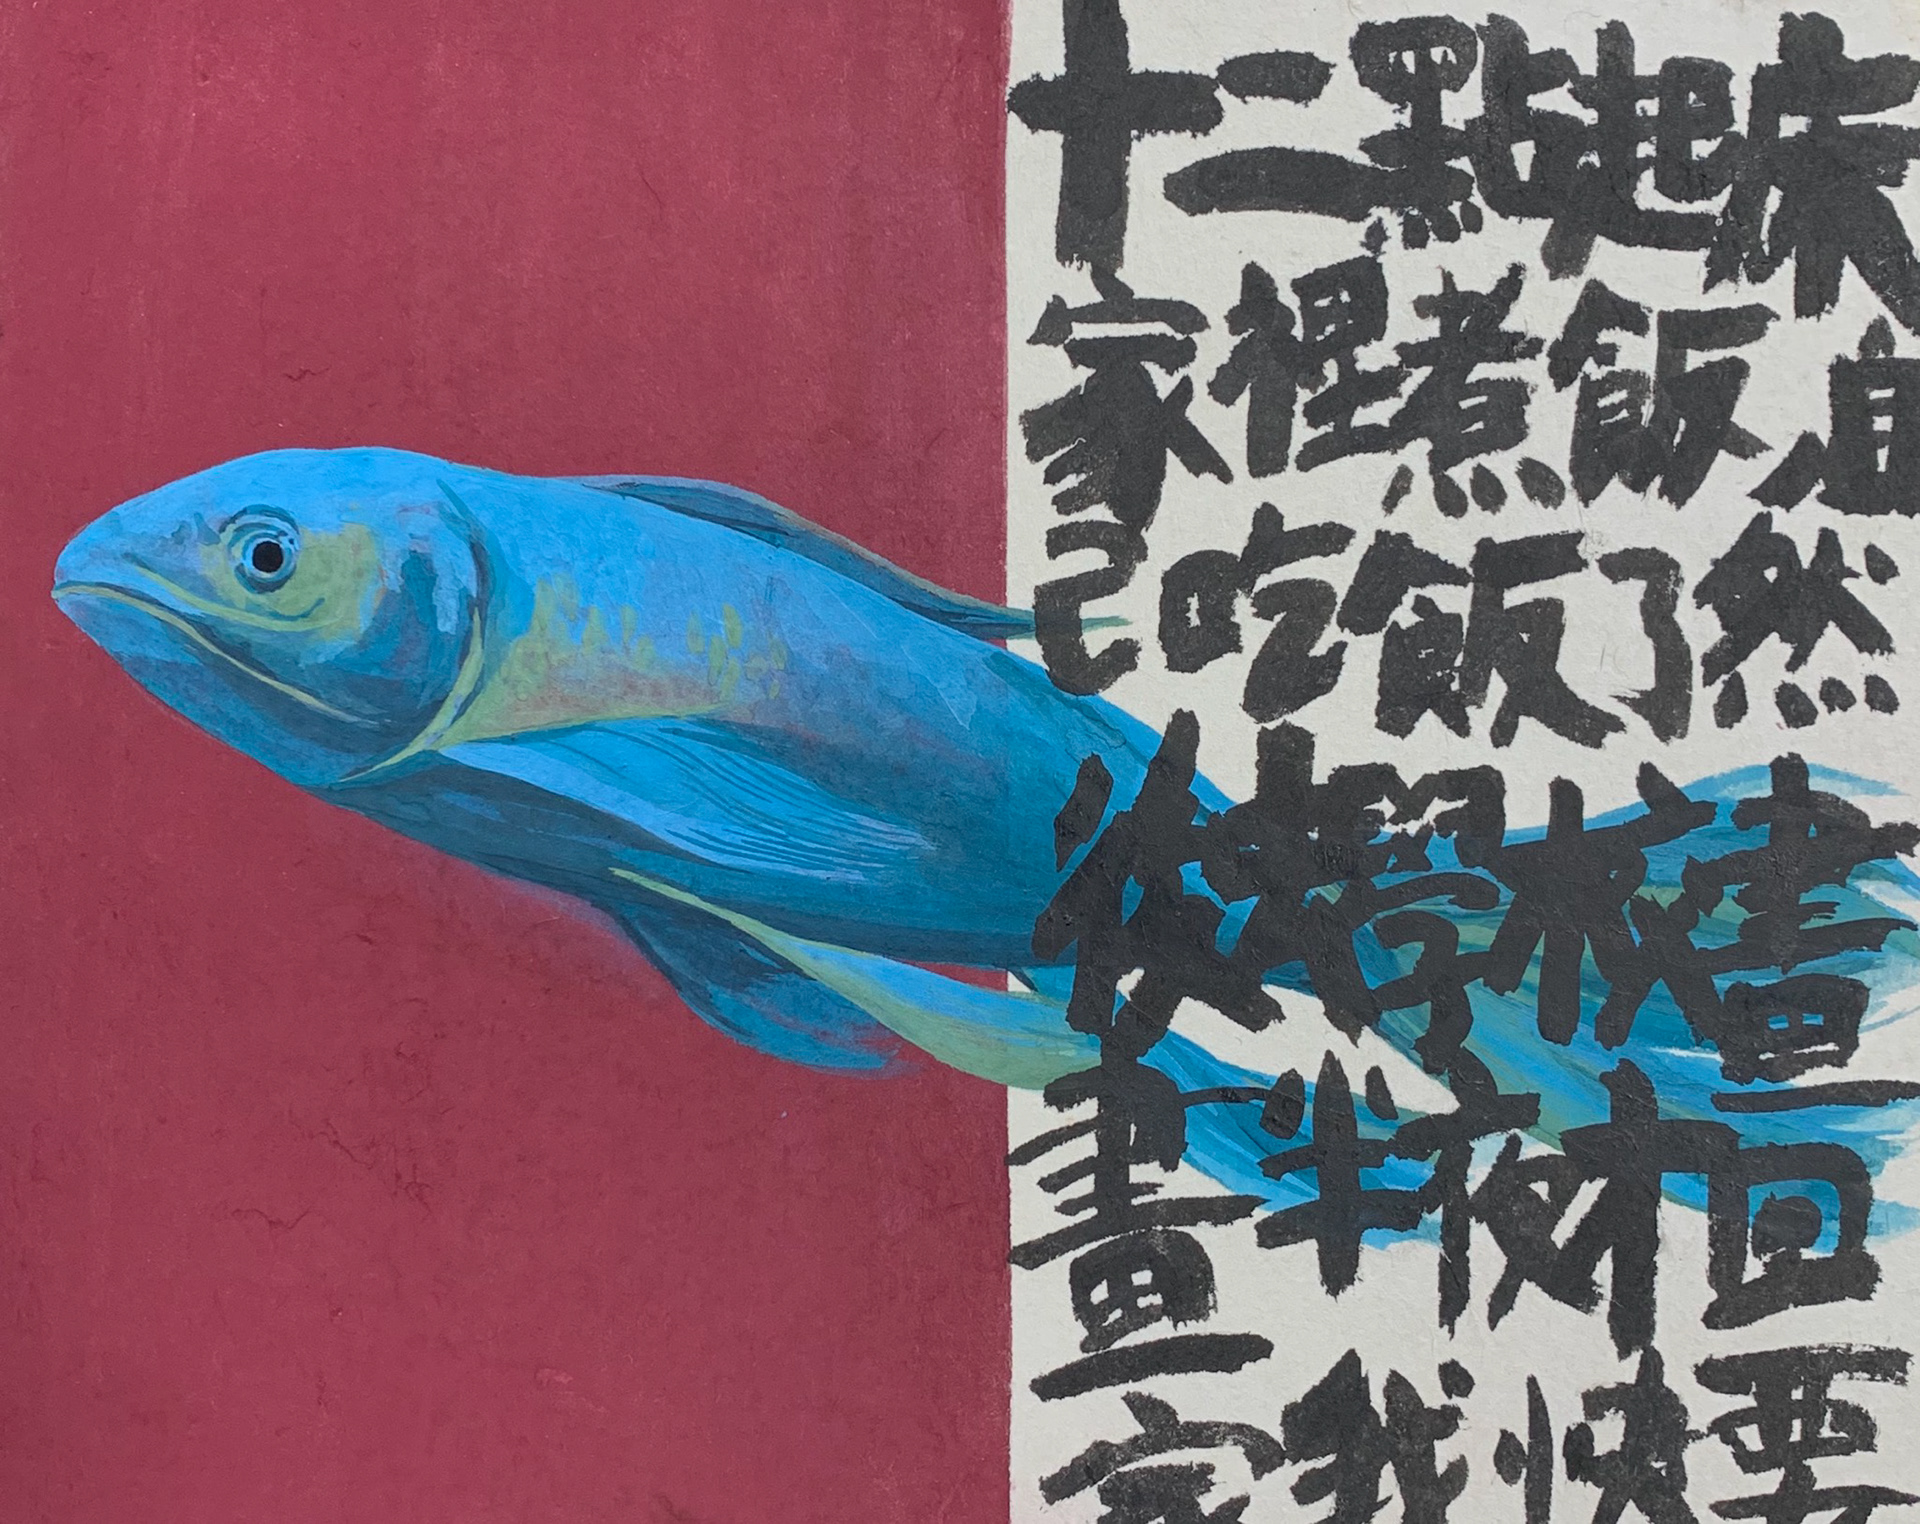 十二點起床
家裡煮飯自
己吃飯了然
後在學校畫
畫半夜才回
家我快要